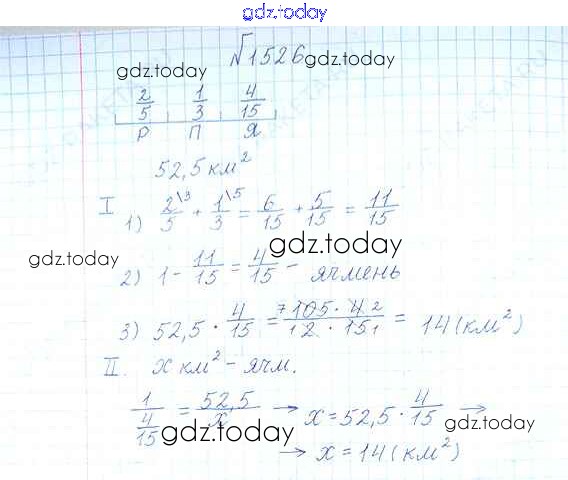 gdz.today
№1526 gdz.today
gdz.today
2/5 1/3 4/15
Р П Я
52,5 км²
I 1) 2\3/5 + 1\5/3 = 6/15 + 5/15 = 11/15
gdz.today
gdz.today
2) 1 - 11/15 = 4/15 - ячмень
3) 52,5 · 4/15 = 7 105 · 4 2 / 1 2 · 15 1 = 14 (км²)
II. x км² - ячм.
1/(4/15) = 52,5/x → x = 52,5 · 4/15 →
gdz.today
gdz.today
→ x = 14 (км²)